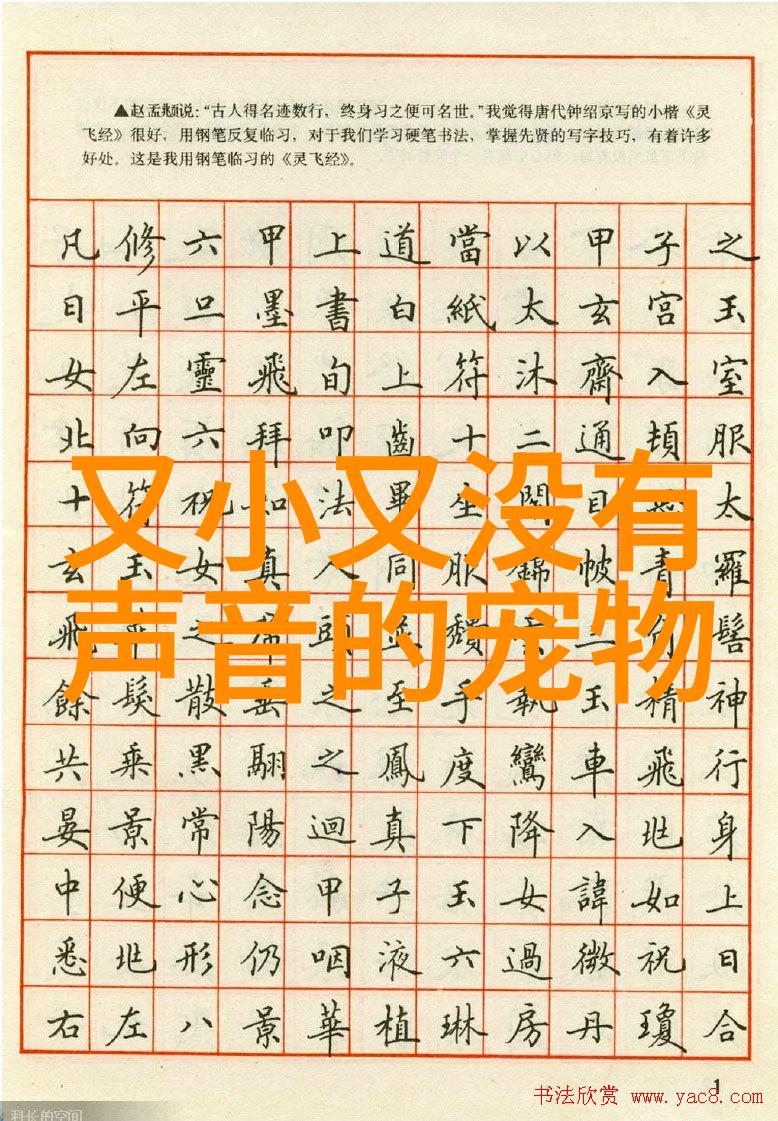 ▲赵孟頫说：“古人得名迹数行，终身习之便可名世。”我觉得唐代钟绍京写的小楷《灵
飞经》很好，用钢笔反复临习，对于我们学习硬笔书法，掌握先贤的写字技巧，有着许多
好处。这是我用钢笔临习的《灵飞经》。
凡修六甲上道當以甲子之
日平旦墨書白紙太玄宮玉
女左靈飛旬上符沐齋入室
北向六拜叩齒十二通頓服
十符祝如法畢坐閉目太
又小又没有
玄玉女真人同服錦帔青羅
声音的宠物
飛之頭並頹髻
餘髮散垂之至手執玉精神
共乘黑翮之鳳度鸞車飛行
晏景常陽迴真下降入北身
中便心念甲子玉女諱如上
悉北形仍咽液六過微祝曰
右左八景華植琳房丹瓊合
1
书法欣赏 www.yac8.com
科长的空间